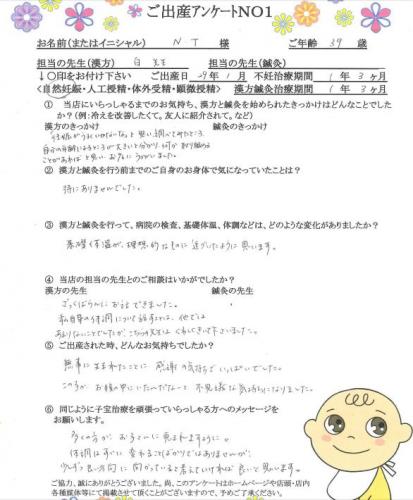 ご出産アンケートNO1
お名前(またはイニシャル) N T 様 ご年齢 39 歳
担当の先生(漢方) 先生 担当の先生(鍼灸)
↓○印をお付け下さい ご出産日 29年 1月 不妊治療期間 1 年 3ヶ月
<自然妊娠・人工授精・体外受精・顕微授精> 漢方鍼灸治療期間 1 年 3ヶ月
① 当店にいらっしゃるまでのお気持ち、漢方と鍼灸を始められたきっかけはどんなことでした
か？(例:冷えを改善したくて。友人に紹介されて。など)
漢方のきっかけ 鍼灸のきっかけ
と思い、調べてみたところ、
自分の年齢によるところが大きいと分かり、何か取り組める
ことがあればと思い、お店にうかがいました。
② 漢方と鍼灸を行う前までのご自身のお身体で気になっていたことは？
特にありませんでした。
③ 漢方と鍼灸を行って、病院の検査、基礎体温、体調などは、どのような変化がありましたか？
基礎体温が、理想的なものに近づいたように思います。
④ 当店の担当の先生とのご相談はいかがでしたか？
漢方の先生 鍼灸の先生
ざっくばらんにお話できました。
私自身の体調について話すことは、他では
あまりないことでしたが、こちらの先生は
⑤ ご出産された時、どんなお気持ちでしたか？
無事に生まれたことに、感謝の気持ちでいっぱいでした。
この子が、お腹の中にいたのだなーと、不思議な気持ちになりました。
⑥ 同じように子宝治療を頑張っていらっしゃる方へのメッセージを
お願いします。
多くの方が、お子さんに恵まれますように。
体調はすぐに変わることばかりではありませんが、
少しずつ良い方向に向かっていると考えていければ良いと思います。
ご協力、誠にありがとうございました。尚、このアンケートはホームページや店頭・店内
各種媒体等にて掲載させて頂くことがございますので、予めご了承ください。